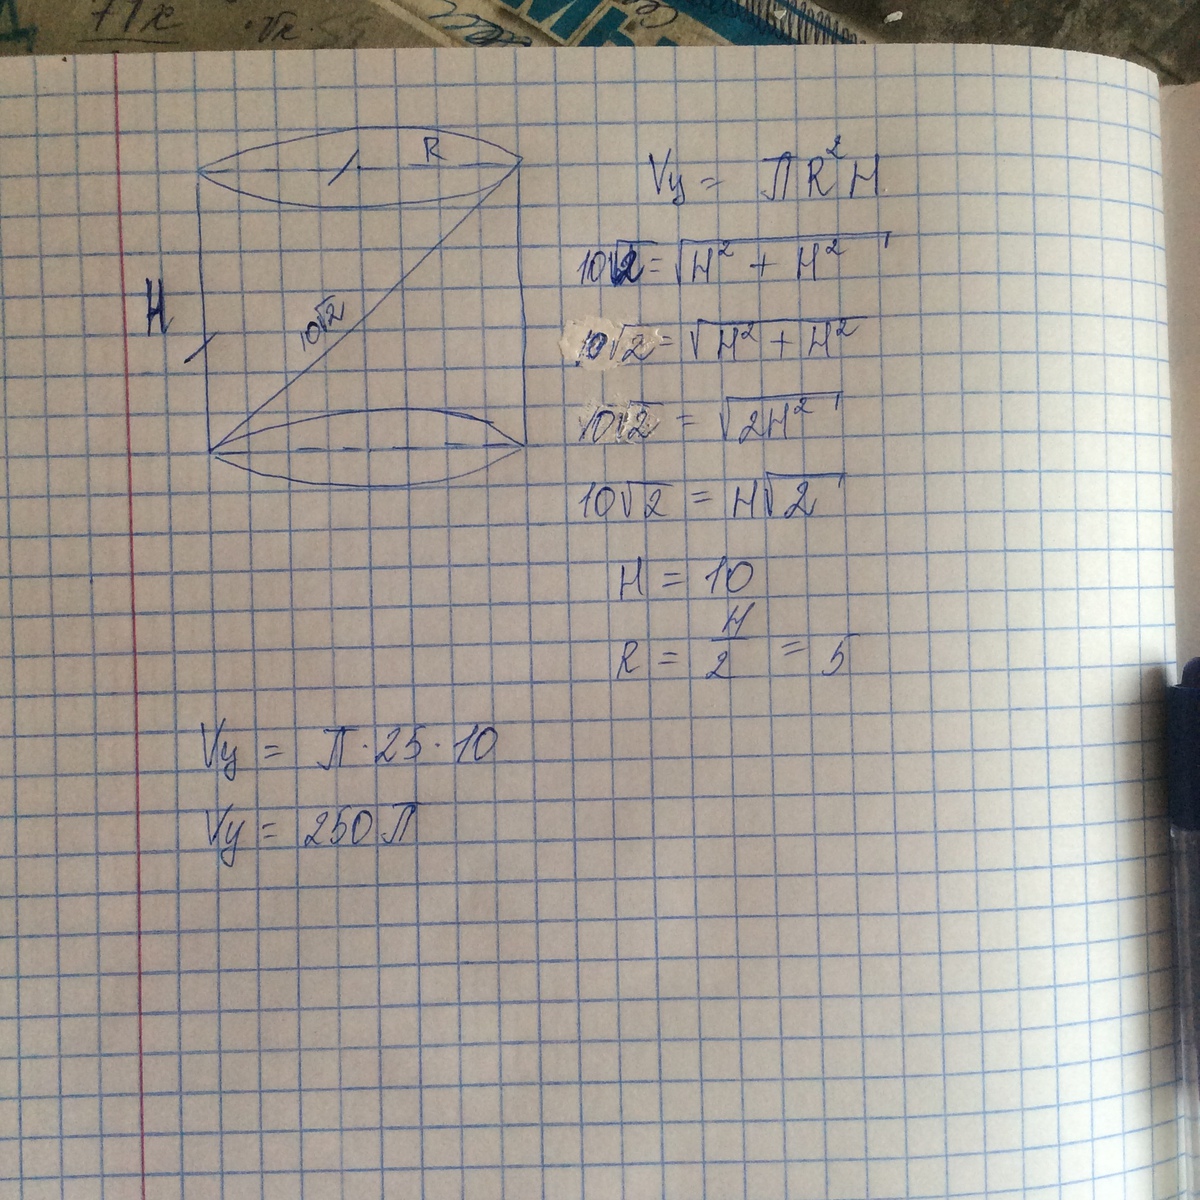 71x
R
H
10√2
Vц = ПR²H
10√2 = √H² + H²
10√2 = √H² + H²
10√2 = √2H²
10√2 = H√2
H = 10
R = H/2 = 5
Vц = П · 25 · 10
Vц = 250П